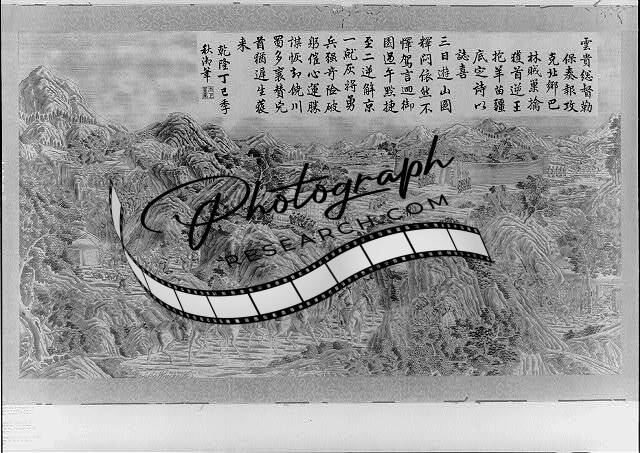 雲貴總督勒
保奏報攻
克北鄉巴
林賊巢擒
獲首逆王
抱羊苗疆
底定詩以
誌喜
三日遊山園
問依然不
憚駕言迴御
園過午默捷
至二逆解京
一就灰將勇
兵强奇險破
躬催心運
謀川
蜀多
首猶遲生
來
乾隆丁巳季
秋御筆
Photograph
RESEARCH.COM